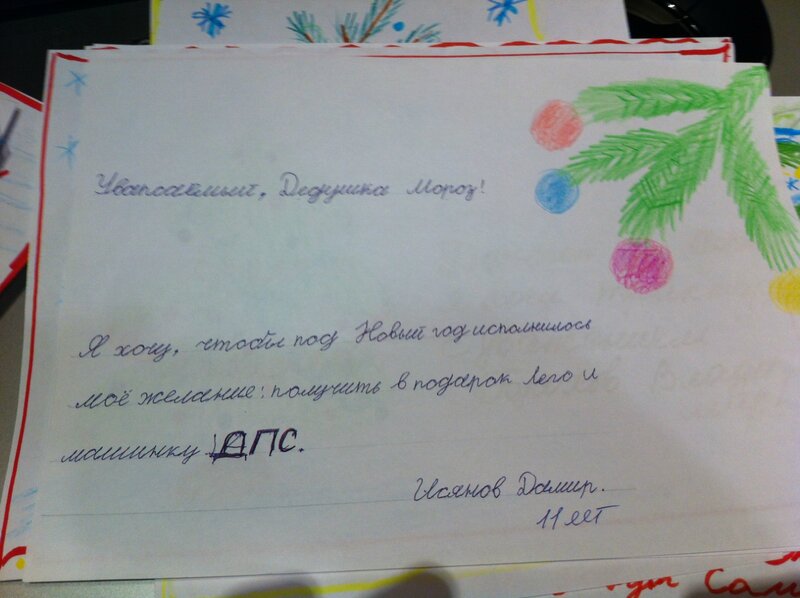 Уважаемый, Дедушка Мороз!
Я хочу, чтобы под Новый год исполнилось
моё желание: получить в подарок Лего и
машинку ДПС.
Исянов Дамир.
11 лет